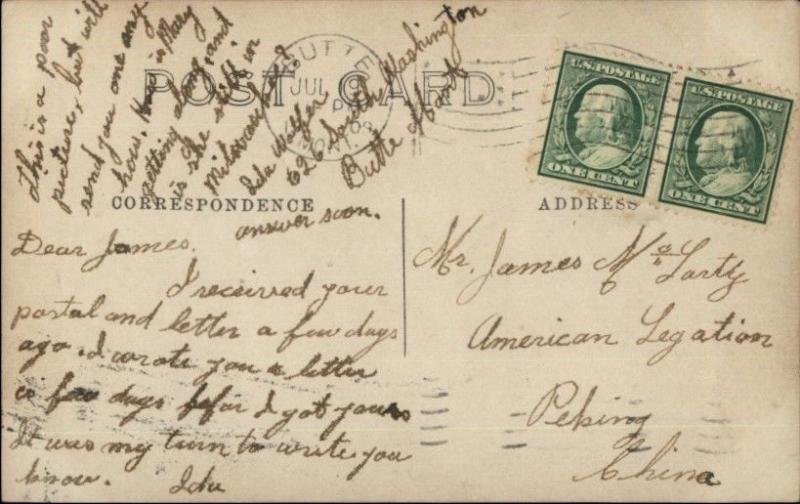 This is a poor
picture, but will
send you one any
how. How is Mary
getting along, and
is she still in
Milwaukee?
Ida Wolfer
626 South Washington
Butte Mont
POST CARD
BUTTE
JUL
MONT.
U.S. POSTAGE
ONE CENT
U.S. POSTAGE
ONE CENT
CORRESPONDENCE
ADDRESS
answer soon.
Dear James.
I received your
postal and letter a few days
ago. I wrote you a letter
a few days befor I got yours
It was my turn to write you
know. Ida
Mr. James McLarty
American Legation
Peking
China